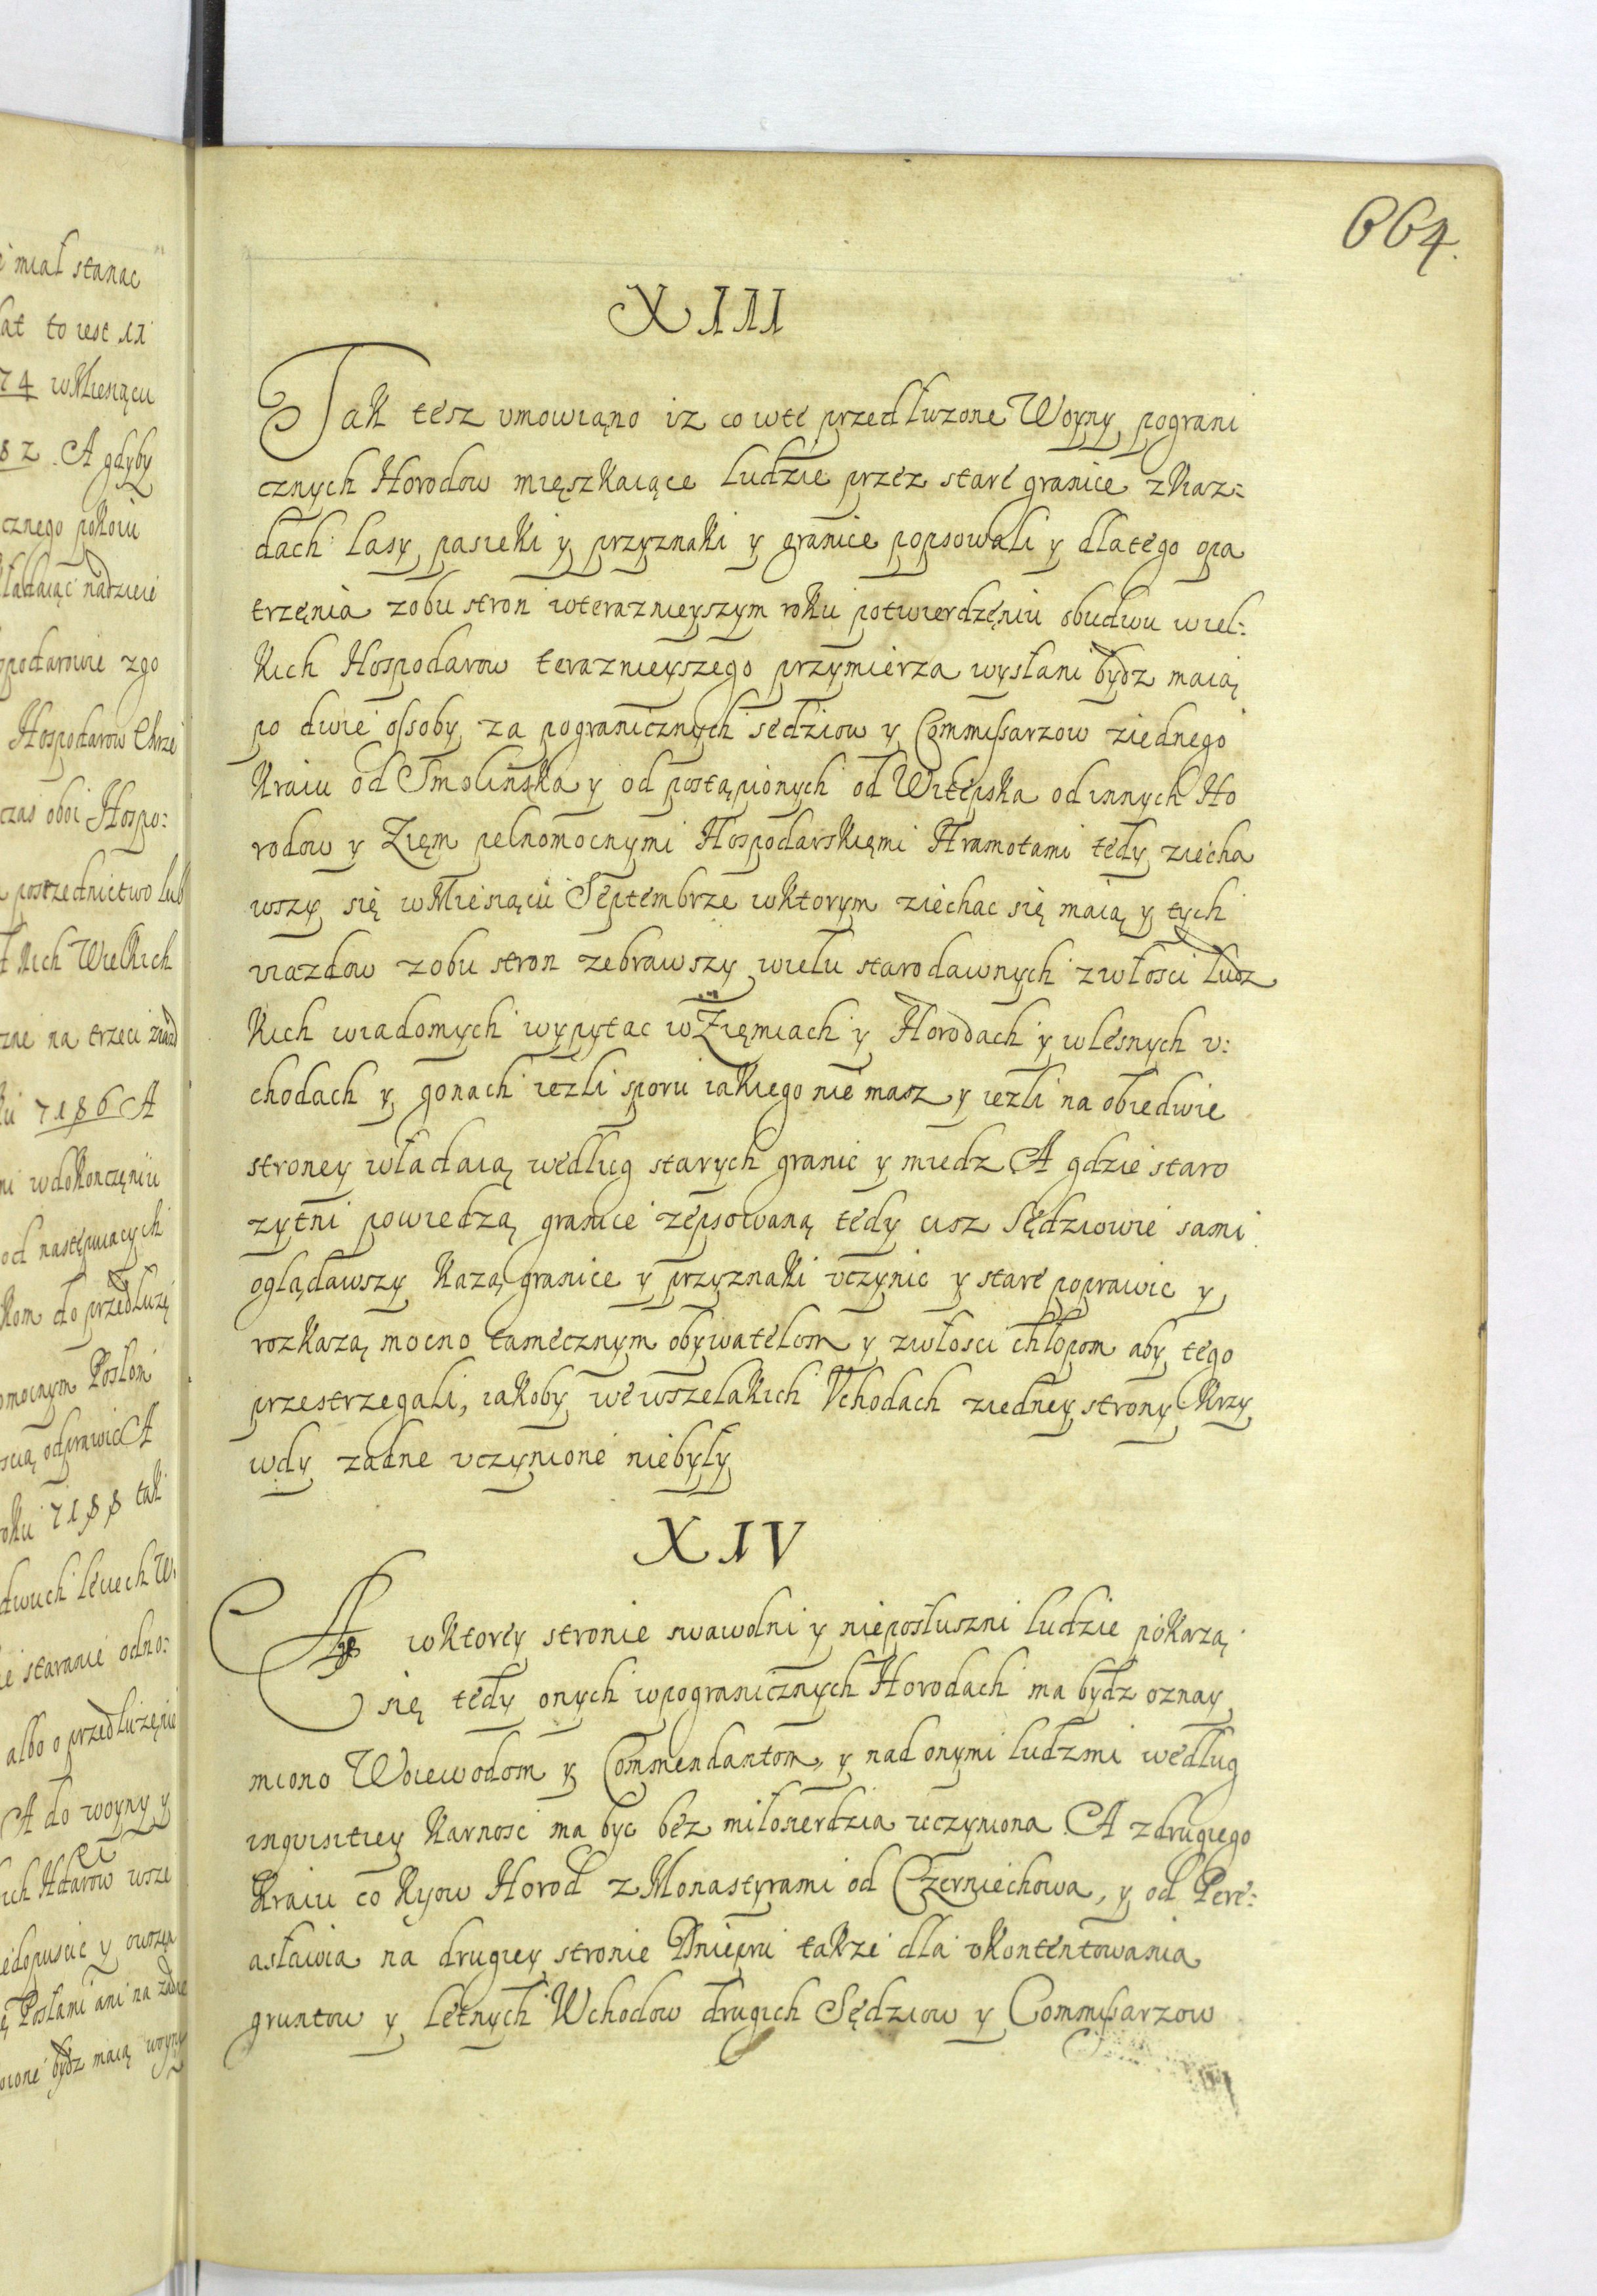 664.
XIII
Tak tesz vmowiąno iz co wte przedłuzone Woyny pograni
cznych Horodow mięszkaiące ludzie przez stare granice zkaz=
dach lasy pasieki y przyznaki y granice popsowali y dlatego opa
trzęnia zobu stron wteraznieyszym roku potwierdzęniu obudwu wiel:
kich Hospodarow teraznieyszego przymierza wysłani bydz maią
po dwie ossoby za pogranicznych sedziow y Commissarzow ziednego
kraiu od Smolińska y od postąpionych od Witepska od innych Ho
rodow y Zięm pelnomocnymi Hospodarskięmi Hramotami tedy ziecha
wszy się wMiesiącu Septembrze wktorym ziechac się maią y tych
viazdow zobu stron zebrawszy wielu starodawnych zwłosci ludz
kich wiadomych wypytac wZięmiach y Horodach y wlesnych v:
chodach y gonach iezli sporu iakiego nie masz y iezli na obiedwie
stroney władaią wedlug starych granic y miedz A gdzie staro
zytni powiedzą granice zepsowaną tedy cisz Sędziowie sami
oglądawszy kazą granice y przyznaki vczynic y stare poprawic y
rozkazą mocno tamecznym obywatelom y zwłosci chłopom aby tego
przestrzegali, iakoby wewszelakich Vchodach ziedney strony krzy
wdy zadne vczynione niebyły
XIV
A wktorey stronie swawolni y nieposłuszni ludzie pokazą
się tedy onych wpogranicznych Horodach ma bydz oznay
miono Woiewodom y Commendantom, y nad onymi ludzmi wedlug
inquisitiey karnosc ma byc bez miłosierdzia vczyniona A zdrugiego
kraiu co Kyow Horod zMonastyrami od Czerniechowa, y od Pere:
asławia na drugiey stronie Dniepru takze dla vkontentowania
gruntow y letnych Wchodow drugich Sędziow y Commissarzow
i miał stanac
lat to iest 11
74 wMiesiącu
82. A gdyby
cznego pokoiu
kładaiąc nadzieie
ospodarowie zgo
Hospodarow Chrze
czas oboi Hospo:
posrzednictwo lub
kich Wielkich
zne na trzeci ziazd
ku 7186 A
mi wdokonczęniu
od nastempuiących
kom do przedłuzę
omocnym Posłom
scią odprawic A
oku 7188 tak
dwuch leciech W
ie staranie odno:
albo o przedluzęnie
A do woyny y
ich Hdarow wsze
edopuscic y owszem
ę Posłami ani na zadne
ocione bydz maią woyny